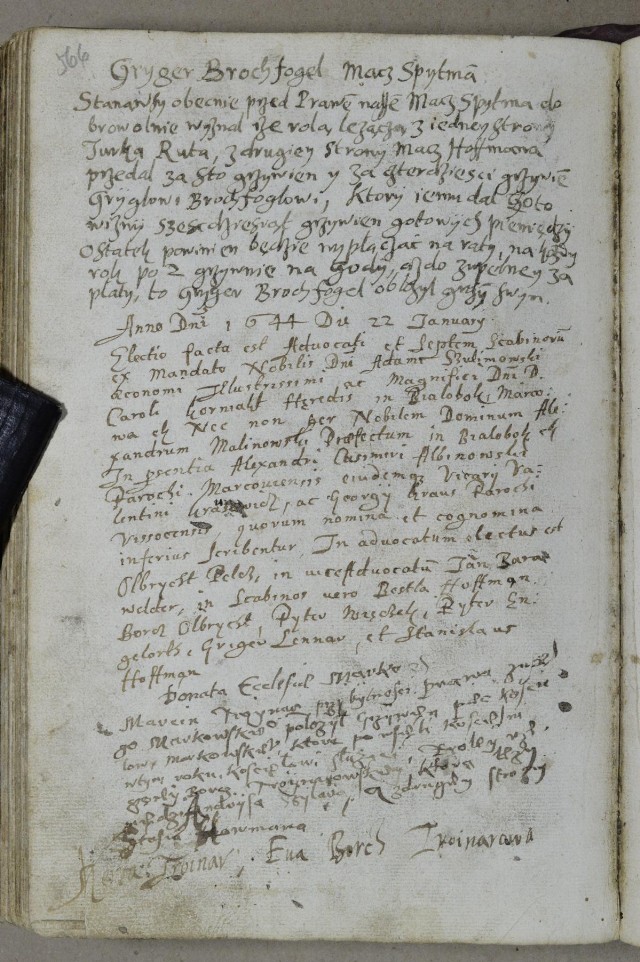 566
Gryger Brochfogel Macz Spytma
Stanąwszy obecnie przed Prawē nasszē Macz Spytma do
browolnie wyznał iże rolą leżączą z iedney strony
Jurka Ruta, z drugiey strony Macz Hoffmana
przedał za sto grzywien y za czterdziesci grzywiē
Gryglowi Brochfoglowi, ktory iemu dał Goto
wizny szescdziesiąt grzywien gotowych pieniędzy
Ostatek powinien będzie wypłaczac na raty, na kożdy
rok po 2 grzywnie na Gody, aż do zupełney za
płaty, to Gryger Brochfogel oblożył grzy
Anno Dni 1644 Die 22 January
Electio facta est Advocati et Septem Scabinorū
ex Mandato Nobilis Dni Adami Szulimowski
Œconomi Illustrissimi ac Magnifici Dni D.
Caroli Korniakt Hæredis in Bialobok, Marco:
wa etc Nec non per Nobilem Dominum Ale:
xandrum Malinowski Præfectum in Bialobok etc
In psentia Alexandri Casimiri Albinowski
Parochi Marcoviensis eiudemq Vicary Va:
lentini ac Georgy Kraus Parochi
Vissocensis quorum nomina et cognomina
inferius scribentur, In advocatum electus est
Olbrycht Pelc, in viceAdvocatū Jan Bara
welder, in Scabinos vero Bestla Hoffman
Borcz Olbrycht, Pyter Nisczek, Pyter En:
gelorth, Gryger Lennar, et Stanislaus
Hoffman
Donata Ecclesiæ Marko
Marcin Troynar przy bytnosci prawa zu
go Markowskiego położył Grzywien pułc kosciu
łowi Markowskiemu, ktore
wtym roku, kosciołowi
Borcz
Andrysa z drugiey strony
Stofla Hawmana
Troinar, Eva Borch Troinarowa